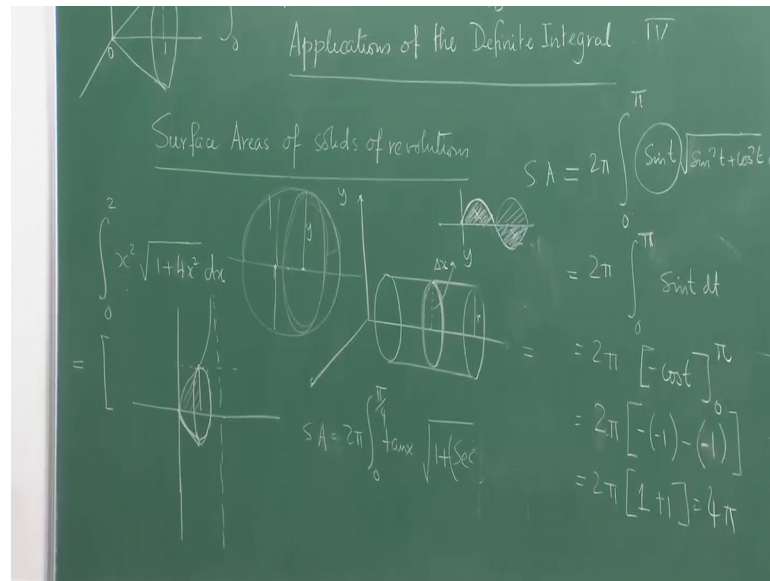 Applications of the Definite Integral IV
Surface Areas of solids of revolutions
∫₀² x² √(1+4x²) dx
= [
y
y
y
Δx
r
0
SA = 2π ∫₀^(π/4) tanx √(1+(Sec
=
SA = 2π ∫₀^π Sint √(Sin²t+cos²t)
= 2π ∫₀^π Sint dt
= 2π [-cost]₀^π
= 2π [-(-1)-(-1)]
= 2π [1+1] = 4π